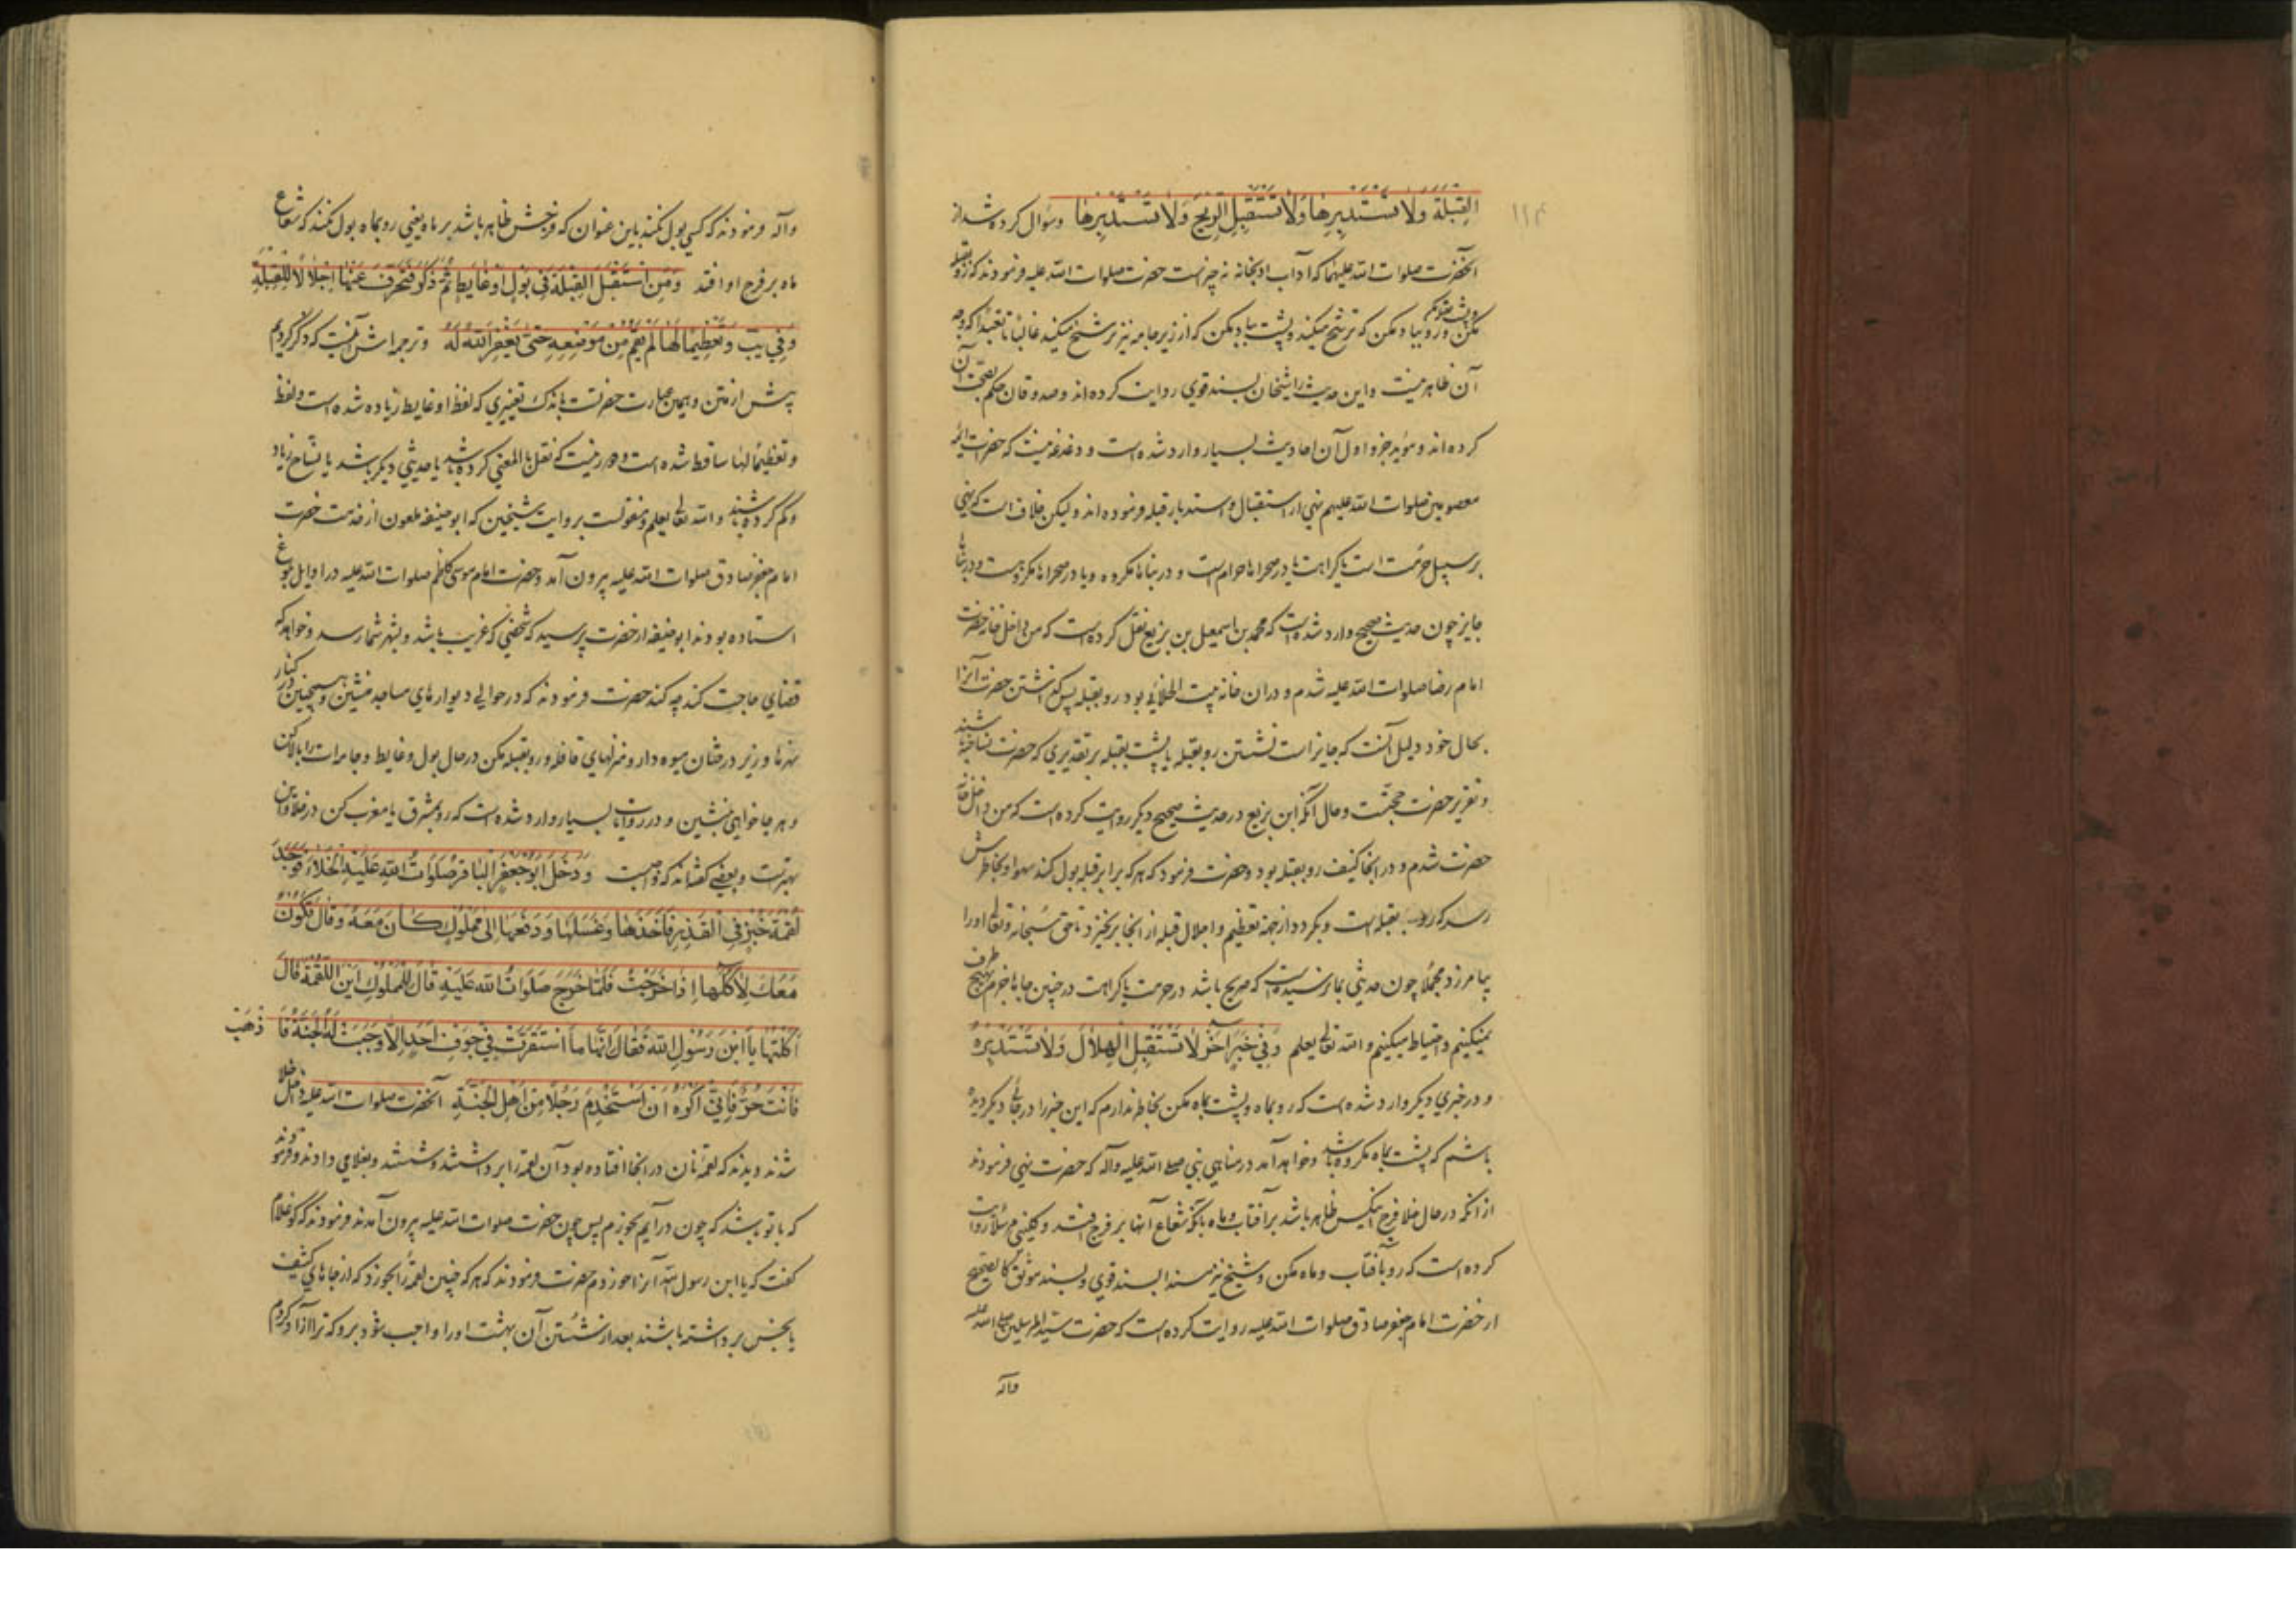 القِبلَةَ وَلَا تَسْتَدْبِرهَا وَلَا تَسْتَقْبِلِ الرِّيحَ وَلَا تَسْتَدْبِرهَا وسؤال کرده شد از
۱۱۴
آنحضرت صلوات الله علیهما که آداب ادبخانه چه چیزست حضرت صلوات الله علیه فرمودند که رو بقبله
مکن و پشت هم مکن و رو بباد مکن که ترشح میکند و پشت بباد مکن که از زیر جامه نیز ترشح میکند غالبا یا تعبدا که وجه
آن ظاهر نیست و این حدیث را شیخان بسند قوی روایت کرده اند و صدوقان حکم بصحت آن
کرده اند و مؤید جزو اول آن احادیث بسیار وارد شده است و دغدغه نیست که حضرات ائمه
معصومین صلوات الله علیهم نهی از استقبال و استدبار قبله فرموده اند ولیکن خلاف است که نهی
بر سبیل حرمت است یا کراهت یا در صحراها حرام است و در بناها مکروه و یا در صحراها مکروهست و در بناها
جایز چون حدیث صحیح وارد شده است که محمد بن اسمعیل بن بزیع نقل کرده است که من داخل خانه حضرت
امام رضا صلوات الله علیه شدم و در ان خانه بیت الخلائی بود رو بقبله پس گذاشتن حضرت آنرا
بحال خود دلیل آنست که جایز است نشستن رو بقبله یا پشت بقبله بر تقدیری که حضرت نساخته باشند
و تقریر حضرت حجتست و حال آنکه ابن بزیع در حدیث صحیح دیگر روایت کرده است که من داخل خانه
حضرت شدم و در انجا کنیف رو بقبله بود و حضرت فرمود که هر که برابر قبله بول کند سهوا و بخاطرش
رسد که رو بقبله است و بگردد از جهة تعظیم و اجلال قبله از انجا برنخیزد تا حق سبحانه و تعالی او را
بیامرزد مجملا چون حدیثی بما نرسیده است که صریح باشد در حرمت یا کراهت در چنین جاها جزم بهیچ طرف
نمیکنیم و احتیاط میکنیم و الله تعالی یعلم وَفِي خَبَرٍ آخَرَ لَا تَسْتَقْبِلِ الْهِلَالَ وَلَا تَسْتَدْبِرْهُ
و در خبری دیگر وارد شده است که رو بماه و پشت بماه مکن بخاطر ندارم که این خبر را در جائی دیگر دیده
باشم که پشت بماه مکروه باشد و خواهد آمد در مناهی نبی صلی الله علیه وآله که حضرت نهی فرمودند
از انکه در حال خلا فرج اینکس ظاهر باشد بر آفتاب و ماه بآنکه شعاع آنها بر فرج افتد و کلینی مرسلا روایت
کرده است که رو بآفتاب و ماه مکن و شیخ نیز مسندا بسند قوی و بسند موثق کالصحیح
از حضرت امام جعفر صادق صلوات الله علیه روایت کرده است که حضرت سید المرسلین صلی الله علیه
وآله
وآله فرمودند که کسی بول نکند باین عنوان که فرجش ظاهر باشد بر ماه یعنی رو بماه بول نکند که شعاع
ماه بر فرج او افتد وَمَنِ اسْتَقْبَلَ القِبْلَةَ فِي بَوْلٍ اَوْ غَايِطٍ ثُمَّ ذَكَرَ فَتَحَرَّفَ عَنْهَا اِجْلَالًا لِلْقِبْلَةِ
وَتَعْظِيمًا لَهَا لَمْ يَقُمْ مِنْ مَوْضِعِهِ حَتَّى يَغْفِرَ اللهُ لَهُ و ترجمه اش آنست که ذکر کردیم
پیش از متن و همین عبارت حضرتست باندک تغییری که لفظ او غایط زیاده شده است و لفظ
و تعظیما لها ساقط شده است و دور نیست که نقل بالمعنی کرده باشد یا حدیثی دیگر باشد یا نساخ زیاد
و کم کرده باشند و الله تعالی یعلم و منقولست بروایت شیخین که ابو حنیفه ملعون از خدمت حضرت
امام جعفر صادق صلوات الله علیه بیرون آمد و حضرت امام موسی کاظم صلوات الله علیه در اوایل بلوغ
استاده بودند ابو حنیفه از حضرت پرسید که شخصی که غریب باشد و بشهر شما رسد و خواهد که
قضای حاجت کند چه کند حضرت فرمودند که در حوالی دیوارهای مساجد منشین و همچنین در کنار
نهرها و زیر درختان میوه دار و منزلهای قافله و رو بقبله مکن در حال بول و غایط و جامه ات را بالا کن
و هر جا خواهی بنشین و در روایات بسیار وارد شده است که رو بمشرق یا مغرب کن در خلا و این
بهترست و بعضی گفته اند که واجبست وَدَخَلَ اَبُو جَعْفَرٍ البَاقِرُ صَلَوَاتُ اللهِ عَلَيْهِ الخَلَاءَ فَوَجَدَ
لُقْمَةَ خُبْزٍ فِي القَذَرِ فَاَخَذَهَا وَغَسَلَهَا وَدَفَعَهَا اِلَى مَمْلُوكٍ كَانَ مَعَهُ وَقَالَ تَكُونُ
مَعَكَ لِآكُلَهَا اِذَا خَرَجْتُ فَلَمَّا خَرَجَ صَلَوَاتُ اللهِ عَلَيْهِ قَالَ لِلْمَمْلُوكِ اَيْنَ اللُّقْمَةُ قَالَ
اَكَلْتُهَا يَا ابْنَ رَسُولِ اللهِ فَقَالَ اِنَّهَا مَا اسْتَقَرَّتْ فِي جَوْفِ اَحَدٍ اِلَّا وَجَبَتْ لَهُ الجَنَّةُ فَاذْهَبْ
فَاَنْتَ حُرٌّ فَاِنِّي اَكْرَهُ اَنْ اَسْتَخْدِمَ رَجُلًا مِنْ اَهْلِ الجَنَّةِ آنحضرت صلوات الله علیه داخل خلا
شدند و دیدند که لقمه نان در انجا افتاده بود آن لقمه را برداشتند و شستند و بغلامی دادند و فرمودند
که با تو باشد که چون در آیم بخورم پس چون حضرت صلوات الله علیه بیرون آمدند فرمودند که کو غلام
گفت که یا ابن رسول الله آنرا خوردم حضرت فرمودند که هر که چنین لقمه را بخورد که از جاهای کثیف
یا نجس برداشته باشند بعد از شستن آن بهشت او را واجب شود برو که ترا آزاد کردم